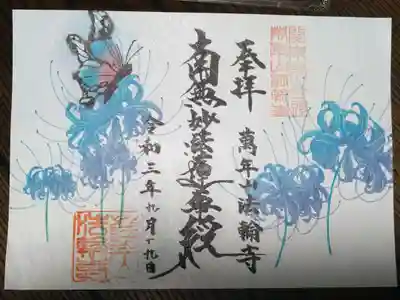 奉拝
萬年山法輪寺
南無妙法蓮華経
令和三年九月十九日